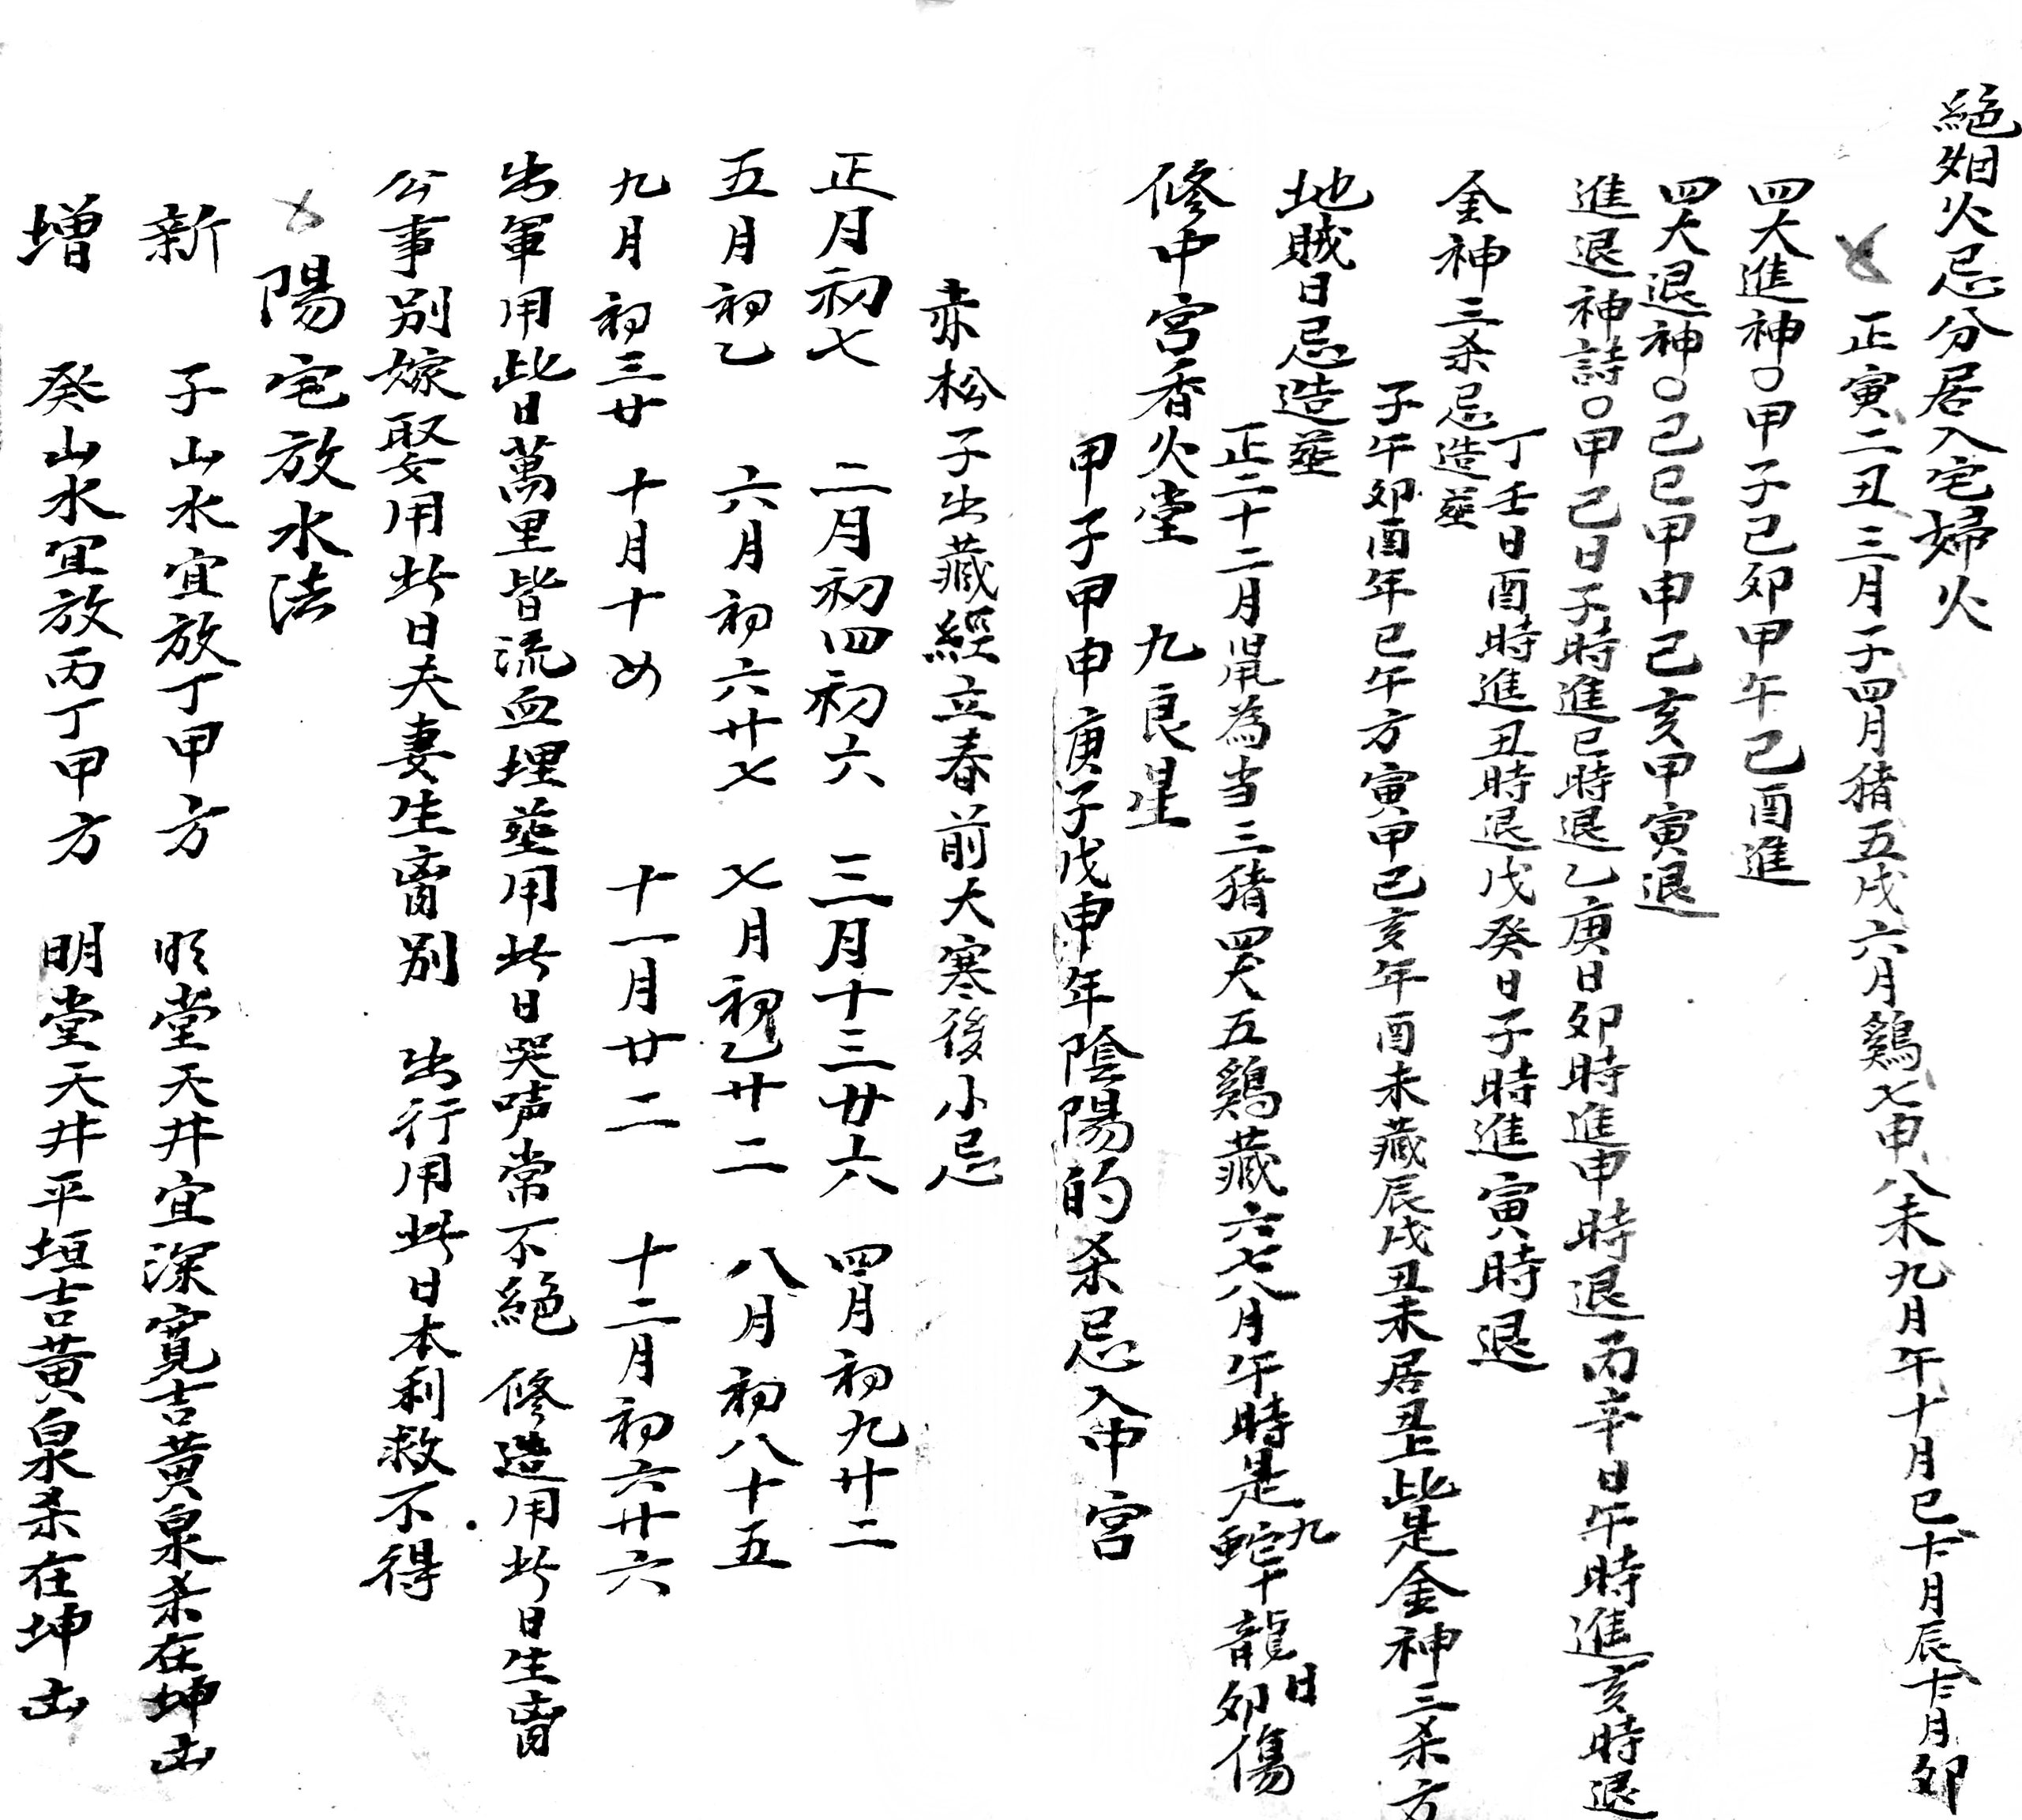 絕烟火忌分居入宅婦火
正寅二丑三月子四月猪五戌六月鷄七申八未九月午十月巳十一月辰十二月卯
四大進神〇甲子己卯甲午己酉進
四大退神〇己巳甲申己亥甲寅退
進退神詩〇甲己日子時進巳時退乙庚日卯時進申時退丙辛日午時進亥時退
丁壬日酉時進丑時退戊癸日子時進寅時退
金神三杀忌造塟
子午卯酉年巳午方寅申己亥年酉未藏辰戌丑未居丑上此是金神三杀方
地賊日忌造塟
正二十二月鼠為当三猪四犬五鷄藏六七八月午時是九蛇十龍日卯傷
修中宮香火堂 九良星
甲子甲申庚子戊申年陰陽的杀忌入中宮
赤松子出藏經立春前大寒後小忌
正月初七 二月初四初六 三月十三廿六 四月初九廿二
五月初乙 六月初六廿七 七月初乙廿二 八月初八十五
九月初三廿 十月十 十一月廿二 十二月初六廿六
出軍用此日萬里皆流血埋塟用此日哭声常不絕 修造用此日生啻
公事別嫁娶用此日夫妻生啻別 出行用此日本利救不得
陽宅放水法
新 子山水宜放丁甲方 明堂天井宜深寬吉黃泉杀在坤凶
增 癸山水宜放丙丁甲方 明堂天井平垣吉黃泉杀在坤凶